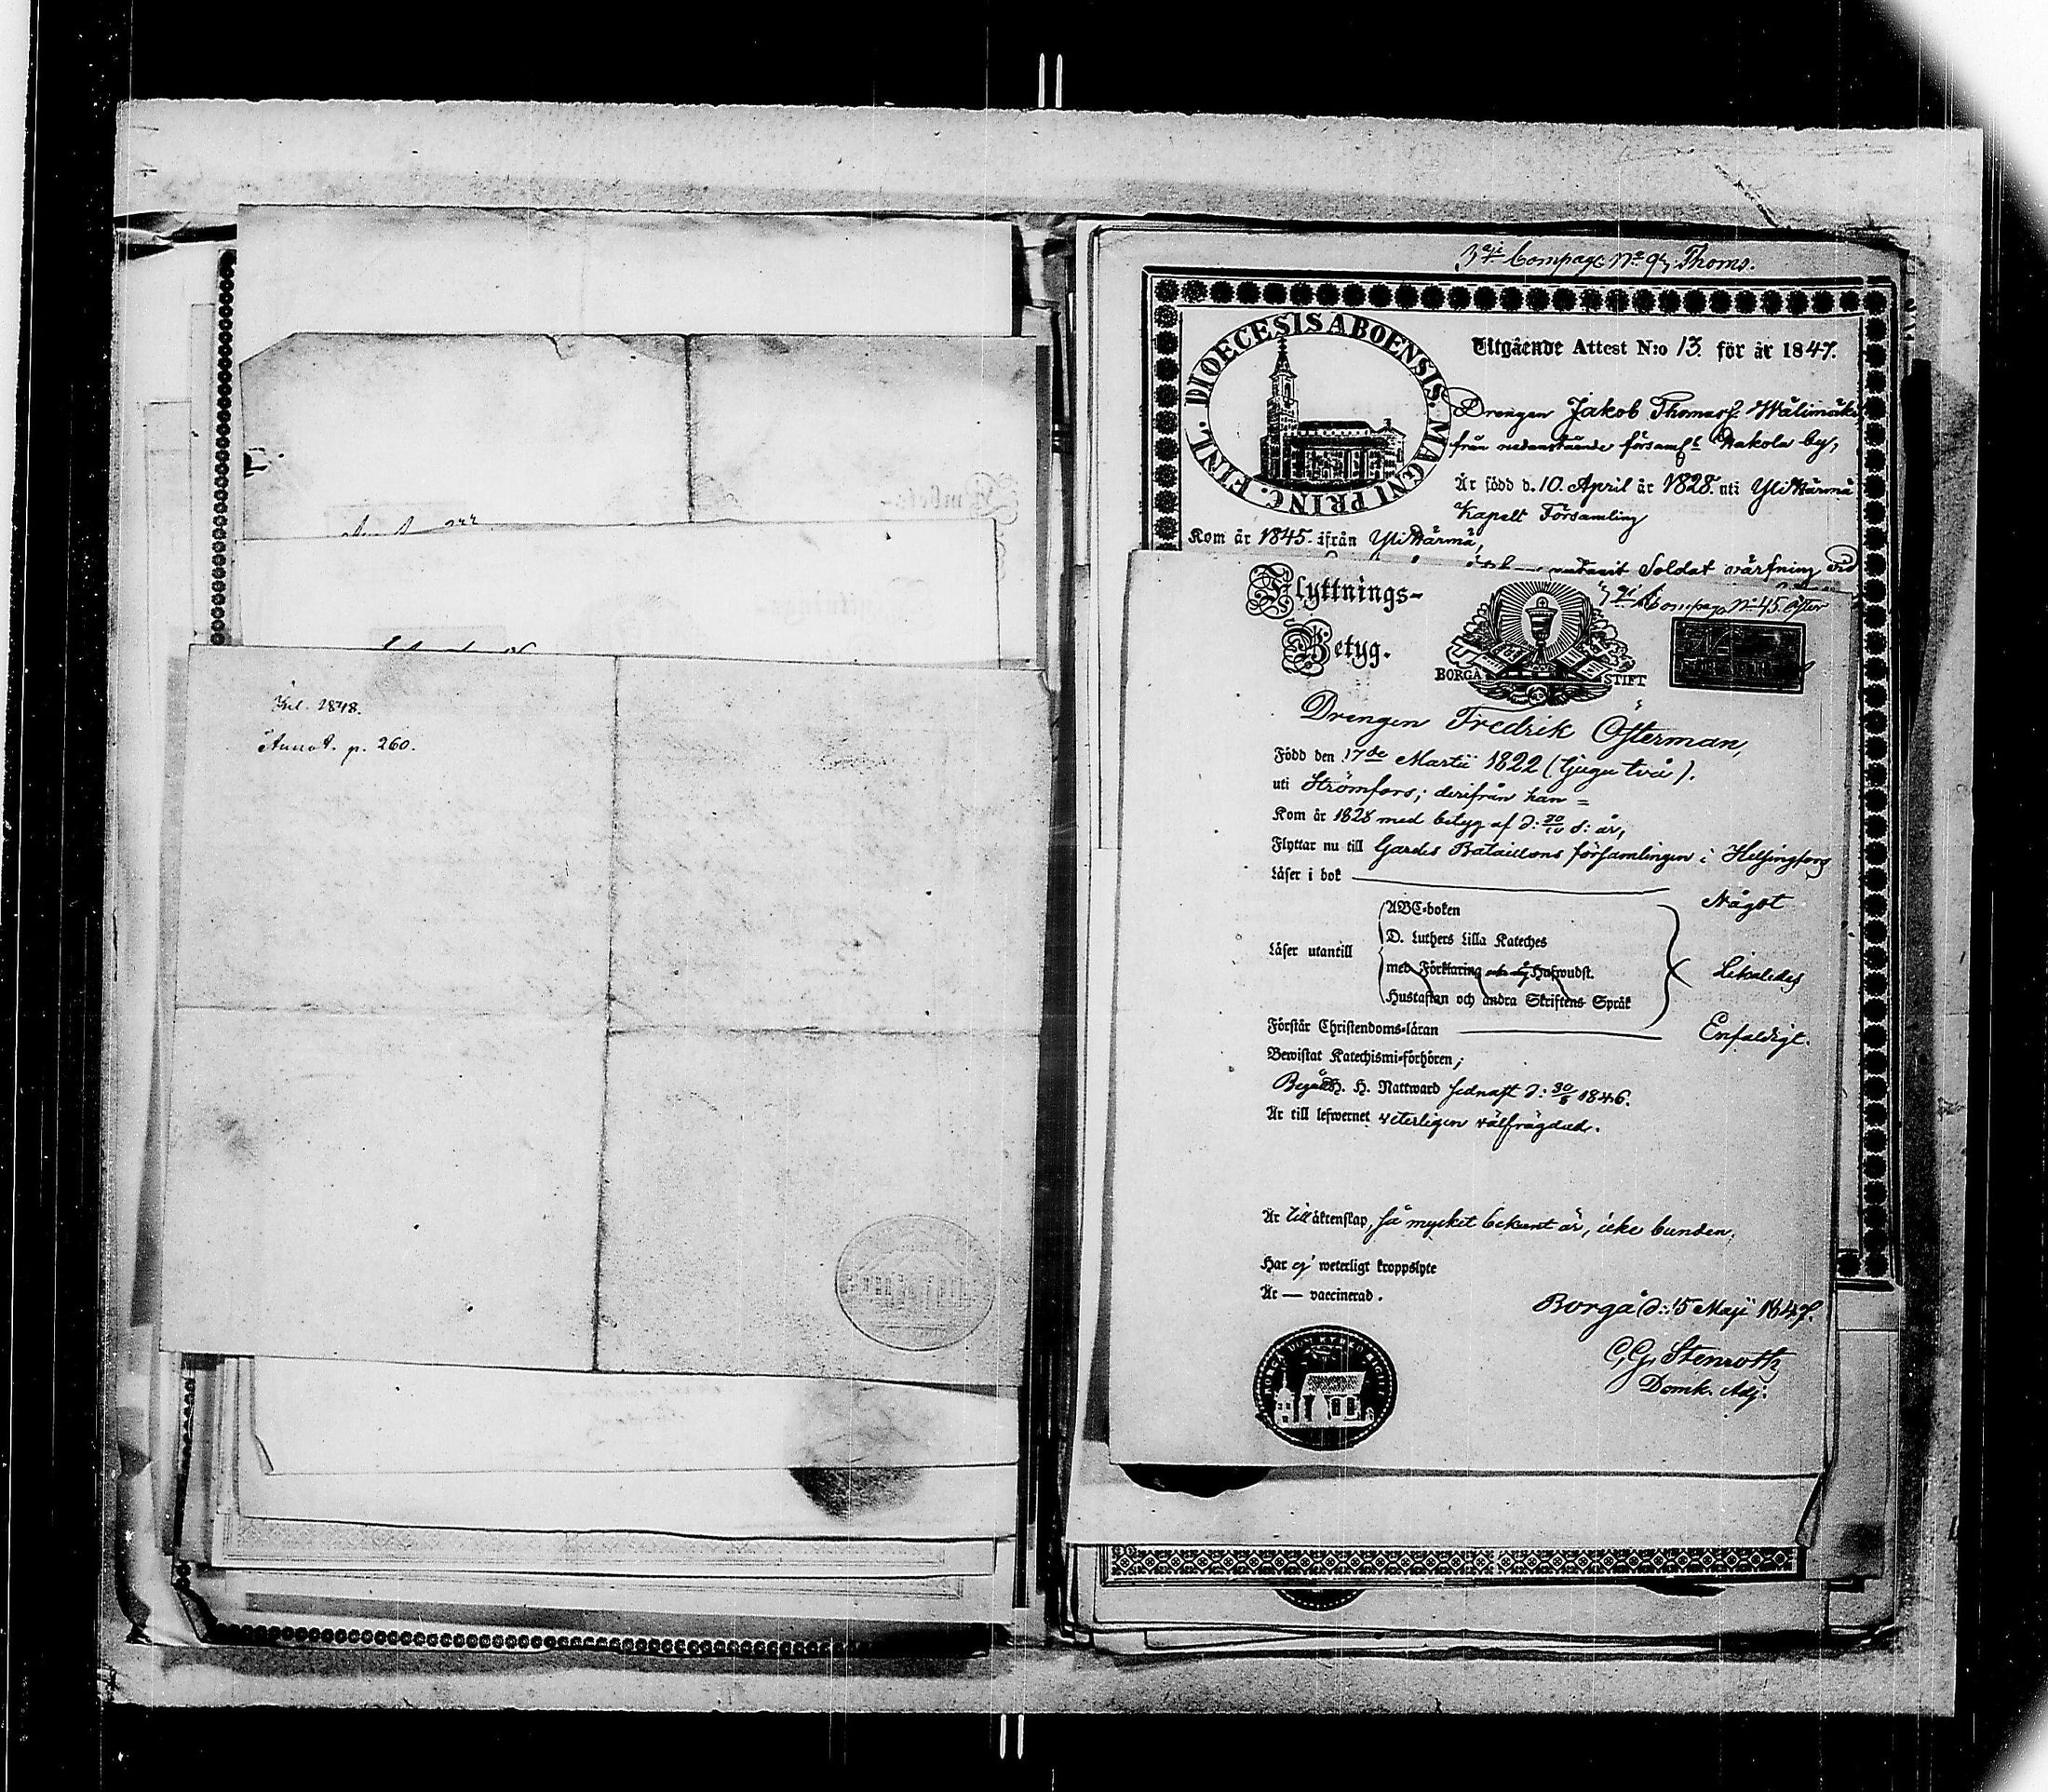 Inl. 1848.
Annot. p. 260.
3dje Compag: No 97 Thoms.
DIOECESIS ABOENSIS. MAGNI PRINC. FINL.
Utgående Attest N:o 13. för år 1847.
Drengen Jakob Thomass. Wälimäki
från nedanstående församl: Wakola by,
Är född d. 10. April år 1828. uti Yli Härmä
Kapell Församling
Kom år 1845. ifrån Yli Härmä,
Soldat värfning vid
Flyttnings-
Betyg.
BORGÅ STIFT
Compag No 45. Öster
Drengen Fredrik Österman,
Född den 17de Martii 1822 (tjugu två).
uti Strömfors; derifrån han =
Kom år 1828 med betyg af d: 30/10 s: år,
Flyttar nu till Gardes Bataillons församlingen i Helsingfors
Läser i bok Något
Läser utantill
ABC-boken
D. Luthers Lilla Kateches
med Förklaring och dess Hufwudst.
Hustaflan och andra Skriftens Språk
Likaledes
Förstår Christendoms-läran Enfaldigt.
Bewistat Katechismi-förhören;
Begått H. H. Nattward sednast d: 30/8 1846.
Är till lefwernet veterligen välfrägdad.
Är till äktenskap, så mycket bekant är, icke bunden.
Har ej weterligt kroppslyte
Är — vaccinerad.
Borgå d: 15 Maji 1847.
C. G. Stenroth
Domk. Adj: